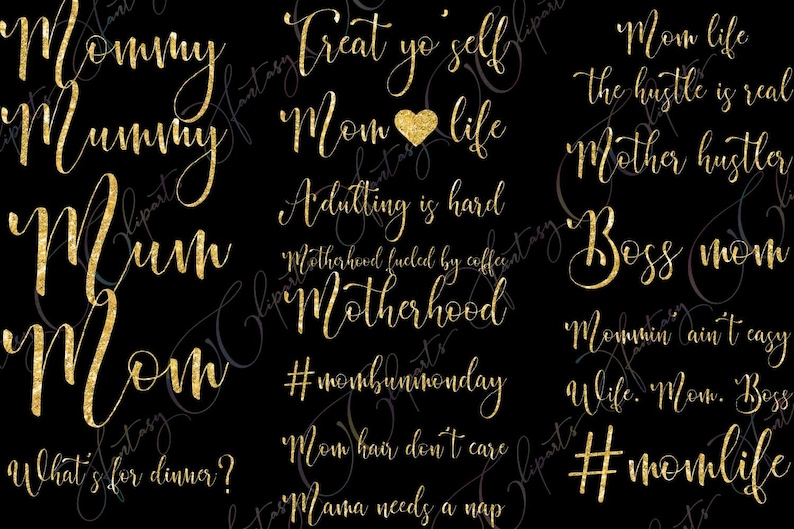 Mommy
Mummy
Mum
Mom
What's for dinner?
Treat yo' self
Mom life
Adulting is hard
Motherhood fueled by coffee
Motherhood
#mombunmonday
Mom hair don't care
Mama needs a nap
Mom life
the hustle is real
Mother hustler
Boss mom
Mommin' ain't easy
Wife. Mom. Boss
#momlife
fantasy Cliparts